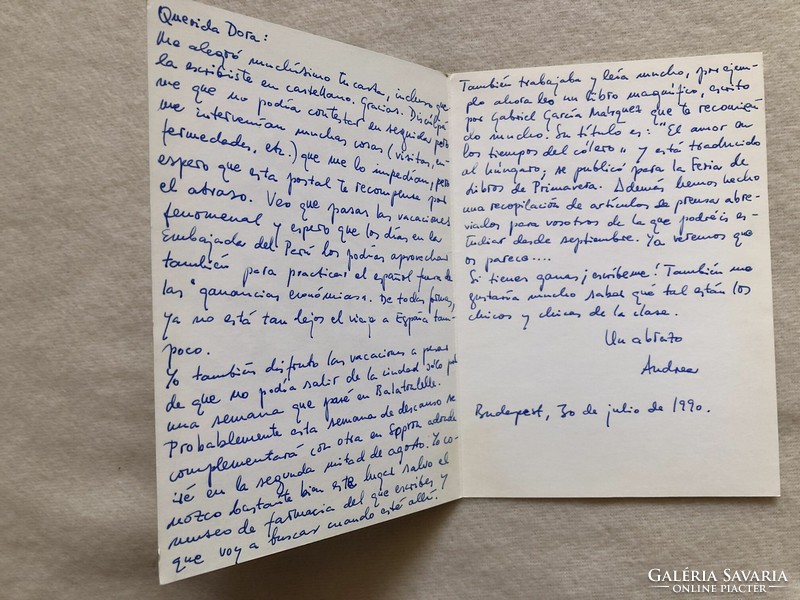 Querida Dora:
Me alegró muchísimo tu carta, incluso que
la escribiste en castellano. Gracias. Disculpa-
me que no podía contestar en seguida pero
me intervenían muchas cosas (visitas, en-
fermedades, etc.) que me lo impedían, pero
espero que esta postal te recompense por
el atraso. Veo que pasas las vacaciones
fenomenal y espero que los días en la
Embajada del Perú los podías aprovechar
también para practicar el español fuera de
las "ganancias económicas. De todas formas,
ya no está tan lejos el viaje a España tam-
poco.
Yo también disfruto las vacaciones a pesar
de que no podía salir de la ciudad sólo por
una semana que pasé en Balatonlelle.
Probablemente esta semana de descanso se
complementará con otra en Sopron adonde
iré en la segunda mitad de agosto. Yo co-
nozco bastante bien este lugar salvo el
museo de farmacia del que escribes y
que voy a buscar cuando esté allí.
También trabajaba y leía mucho, por ejem-
plo ahora leo un libro magnífico, escrito
por Gabriel García Márquez que te recomien-
do mucho. Su título es: "El amor en
los tiempos del cólera" y está traducido
al húngaro; se publicó para la Feria de
Libros de Primavera. Además hemos hecho
una recopilación de artículos de prensa abre-
viados para vosotros de la que podréis es-
tudiar desde septiembre. Ya veremos que
os parece....
Si tienes ganas ¡escríbeme! También me
gustaría mucho saber qué tal están los
chicos y chicas de la clase.
Un abrazo
Andrea
Budapest, 30 de julio de 1990.
GALÉRIA SAVARIA
ONLINE PIACTÉR